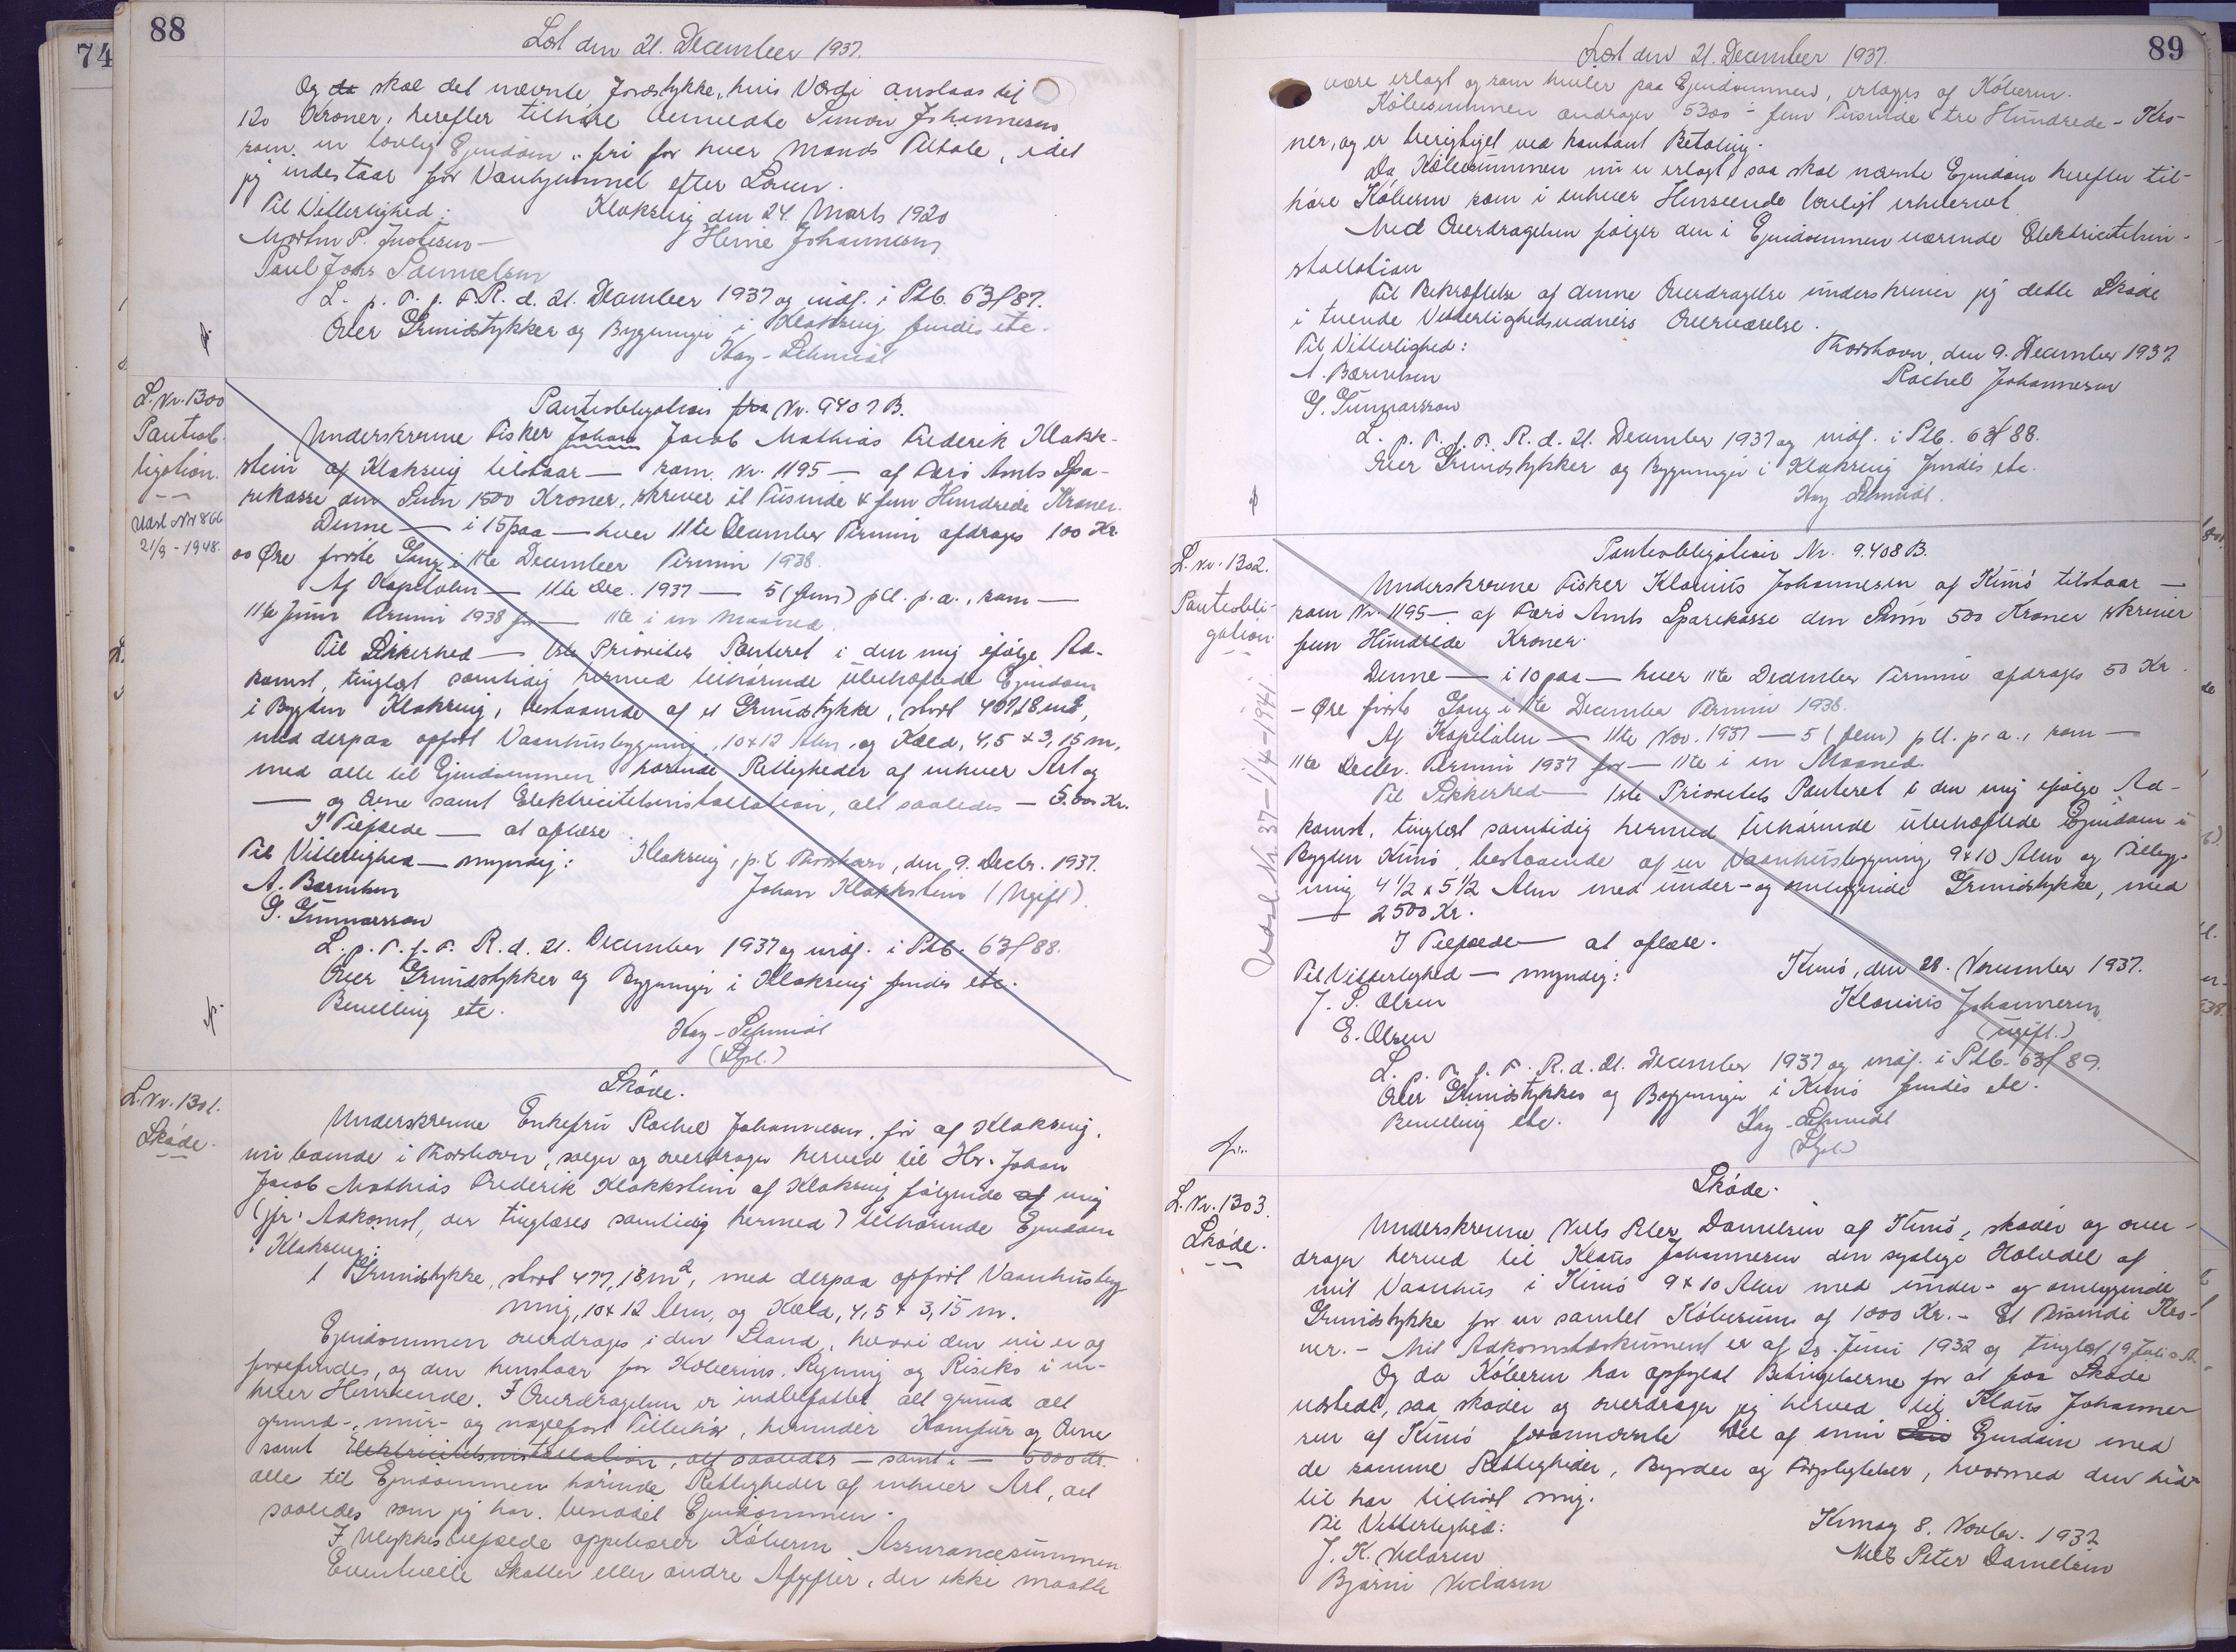 74
88
Læst den 21. December 1937.
Og da skal det nævnte Jordstykke, hvis Værdi anslaas til
120 Kroner, herefter tilhøre Anmeldte Simon Johannesen
som en lovlig Ejendom, fri for hver Mands Tiltale, idet
jeg indestaar for Vanhjemmel efter Loven.
Til Vitterlighed: Klaksvig den 24. Marts 1920
Morten P. Justesen Heine Johannesen
Paul Johs Samuelsen
L. p. T. f. F. R. d. 21. December 1937 og indf. i Ptb. 63f 87.
Over Grundstykker og Bygninger i Klaksvig findes etc.
Kay-Schmidt
L. Nr. 1300
Pantiob-
ligation.
Udsl Nr 866
21/9-1948.
Panteobligation fra Nr. 9407 B.
Underskrevne Fisker Johan Jacob Mathias Frederik Klakk-
stein af Klaksvig tilstaar — som Nr. 1195 — af Færø Amts Spa-
rekasse den Sum 1500 Kroner, skriver et Tusinde & fem Hundrede Kroner.
Denne — i 15 paa — hver 11te December Termin afdrages 100 Kr.
00 Øre første Gang i 11te December Termin 1938.
Af Kapitalen — 11te Dec. 1937 — 5 (fem) pCt. p. a., som —
11te Juni Termin 1938 for — 11te i en Maaned.
Til Sikkerhed — 1ste Prioritets Panteret i den mig ifølge Ad-
komst, tinglæst samtidig hermed tilhørende ubehæftede Ejendom
i Bygden Klaksvig, bestaaende af et Grundstykke, stort 477,18 m2,
med derpaa opført Vaanhusbygning, 10x12 Alen, og Kæld, 4,5 x 3,15 m,
med alle til Ejendommen hørende Rettigheder af enhver Art og
— og Ovne samt Elektricitetsinstallation, alt saaledes — 5.000 Kr.
I Tilfælde — at oplæse
Til Vitterlighed — myndig: Klaksvig, p. t. Thorshavn, den 9. Decbr. 1937.
A. Bærentsen Johan Klakkstein (Ugift).
G. Gunnarsson
L. p. T. f. F. R. d. 21. December 1937 og indf. i Ptb. 63f 88.
Over Grundstykker og Bygninger i Klaksvig findes etc.
Bevilling etc.
Kay-Schmidt
L. Nr. 1301.
Skøde.
Skøde.
Underskrevne Enkefru Rachel Johannesen, før af Klaksvig,
nu boende i Thorshavn, sælger og overdrager herved til Hr. Johan
Jacob Mathias Frederik Klakkstein af Klaksvig følgende af mig
(jfr. Adkomst, der tinglæses samtidig hermed) tilhørende Ejendom
i Klaksvig:
1 Grundstykke, stort 477,18 m2, med derpaa opført Vaanhusbyg
ning, 10x12 Alen, og Kæld, 4,5 x 3,15 m.
Ejendommen overdrages i den Stand, hvori den nu er og
forefindes, og den henstaar for Køberens Regning og Risiko i en-
hver Henseende. I Overdragelsen er indbefattet alt grund alt
grund-, mur- og nagelfast Tilbehør, herunder Komfur og Ovne
samt Elektricitetsinstallation, alt saaledes — samt i — 6000 Kr.
alle til Ejendommen hørende Rettigheder af enhver Art, alt
saaledes som jeg har benyttet Ejendommen.
I Ulykkestilfælde oppebærer Køberen Assurancesummen
Eventuelle Skatter eller andre Afgifter, der ikke maatte
89
Læst den 21. December 1937.
være erlagt og som hviler paa Ejendommen, erlægges af Køberen.
Købesummen andrager 5300 - fem Tusinde tre Hundrede - Kro-
ner, og er berigtiget ved kontant Betaling.
Da Købesummen nu er erlagt, saa skal nævnte Ejendom herefter til-
høre Køberen som i enhver Henseende lovligt erhvervet
Med Overdragelsen følger den i Ejendommen værende Elektricitetsin-
stallation
Til Bekræftelse af denne Overdragelse underskriver jeg dette Skøde
i tvende Vitterlighedsvidners Overværelse.
Til Vitterlighed: Thorshavn, den 9. December 1937
A. Bærentsen Rachel Johannesen
G. Gunnarsson
L. p. T. f. F. R. d. 21. December 1937 og indf. i Ptb. 63f 88.
Over Grundstykker og Bygninger i Klaksvig findes etc.
Kay Schmidt.
L. Nr. 1302.
Panteobli-
gation.
Udsl. Nr. 37 - 1/4-1941.
Panteobligation Nr. 9.408 B.
Underskrevne Fisker Klæmus Johannesen af Kunø tilstaar —
som Nr. 1195 — af Færø Amts Sparekasse den Sum 500 Kroner skriver
fem Hundrede Kroner.
Denne — i 10 paa — hver 11te December Termin afdrages 50 Kr.
- Øre første Gang i 11te December Termin 1938.
Af Kapitalen — 11te Nov. 1937 — 5 (fem) pCt. p. a., som —
11te Decbr. Termin 1937 for — 11te i en Maaned.
Til Sikkerhed — 1ste Prioritets Panteret i den mig ifølge Ad-
komst, tinglæst samtidig hermed tilhørende ubehæftede Ejendom i
Bygden Kunø, bestaaende af en Vaanhusbygning 9x10 Alen og Tilbyg-
ning 4 1/2 x 5 1/2 Alen med under- og omliggende Grundstykke, med
— 2500 Kr.
I Tilfælde — at oplæse.
Til Vitterlighed — myndig: Kunø, den 28. November 1937.
J. P. Olsen Klæmus Johannesen
E. Olsen (ugift.)
L. p. T. f. F. R. d. 21. December 1937 og indf. i Ptb. 63f 89.
Over Grundstykker og Bygninger i Kunø findes etc.
Bevilling etc. Kay-Schmidt
L. Nr. 1303.
Skøde.
Skøde.
Underskrevne Niels Peter Danielsen af Kunø, skøder og over-
drager herved til Klæmus Johannesen den sydlige Halvdel af
mit Vaanhus i Kunø 9 x 10 Alen med under- og omliggende
Grundstykke for en samlet Købesum af 1000 Kr. - Et Tusinde Kro-
ner. - Mit Adkomstdokument er af 20. Juni 1932 og tinglæst 19 Juli s. A.
Og da Køberen har opfyldt Betingelserne for at faa Skøde
udstedt, saa skøder og overdrager jeg herved til Klæmus Johanne-
sen af Kunø forannævnte Del af min Ejendom med
de samme Rettigheder, Byrder og Forpligtelser, hvormed den hid-
til har tilhørt mig.
Til Vitterlighed: Kunoy 8. Novbr. 1937
J. K. Niclasen Niels Peter Danielsen
Bjarni Niclasen